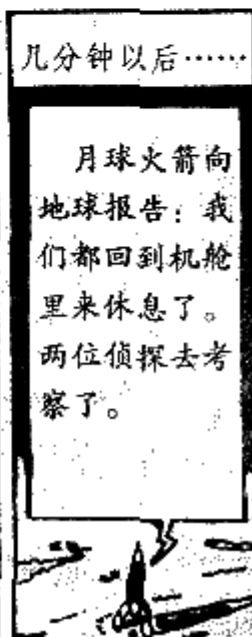 几分钟以后……
月球火箭向
地球报告：我
们都回到机舱
里来休息了。
两位侦探去考
察了。